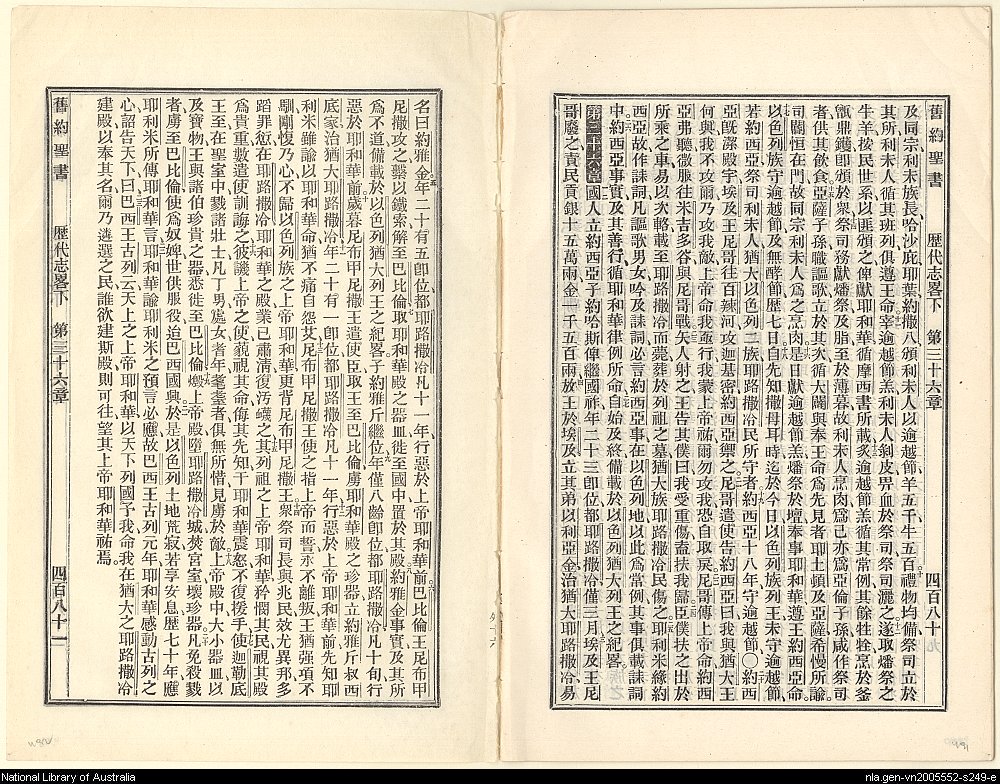 舊約聖書 歷代志畧下 第三十六章 四百八十
及同宗利未族長哈沙庇耶葉約撒八頒利未人以逾越節羊五千牛五百禮物均備祭司立於
其所利未人循其班列俱遵王命宰逾越節羔利未人剝皮畀血於祭司祭司灑之遂取燔祭之
牛羊按民世系以匪頒之俾獻耶和華循摩西書所載炙逾越節羔循其常例其餘牲烹於釜
甑鼎鑊卽頒於衆祭司務獻燔祭及脂至於薄暮故利未人烹肉爲己亦爲亞倫子孫咸作祭司
者供其飮食亞薩子孫職謳歌立於其次循大闢與奉王命爲先見者耶土頓及亞薩希慢所諭
司閽恒在門故同宗利未人爲之烹肉是日獻逾越節羔燔祭於壇奉事耶和華遵王約西亞命
以色列族守逾越節及無酵節歷七日自先知撒母耳時迄於今日以色列族列王未守逾越節
若約西亞祭司利未人猶大以色列二族耶路撒冷民所守者約西亞十八年守逾越節〇約西
亞旣潔殿宇埃及王尼哥往百辣河攻迦基密約西亞禦之尼哥遣使告約西亞曰我與猶大王
何與我不攻爾乃攻我敵上帝命我亟行我蒙上帝祐爾勿攻我恐自取戾尼哥傳上帝命約西
亞弗聽微服往米吉多谷與尼哥戰矢人射之王告其僕曰我受重傷盍扶我歸臣僕扶之出於
所乘之車易以次輅載至耶路撒冷而薨葬於列祖之墓猶大族耶路撒冷民傷之耶利米緣約
西亞故作誄詞凡謳歌男女吟及誄詞必言約西亞事在以色列地以此爲常例其事俱載誄詞
中約西亞事實及其善行循耶和華律例所命自始及終備載於以色列族猶大列王之紀畧
第三十六章國人立約西亞子約哈斯俾繼國祚年二十三卽位都耶路撒冷僅三月埃及王尼
哥廢之責民貢銀十五萬兩金一千五百兩放王於埃及立其弟以利亞金治猶大耶路撒冷易
名曰約雅金年二十有五卽位都耶路撒冷凡十一年行惡於上帝耶和華前巴比倫王尼布甲
尼撒攻之縶以鐵索解至巴比倫取耶和華殿之器皿徙至國中置於其殿約雅金事實及其所
爲不道備載於以色列猶大列王之紀畧子約雅斤繼位年僅八齡卽位都耶路撒冷凡十旬行
惡於耶和華前歲暮尼布甲尼撒王遣使臣取王至巴比倫虜耶和華殿之珍器立約雅斤叔西
底家治猶大耶路撒冷年二十有一卽位都耶路撒冷凡十一年行惡於上帝耶和華前先知耶
利米雖諭以耶和華命猶不痛自怨艾尼布甲尼撒王使之指上帝而誓亦不離叛王猶强項不
馴剛愎乃心不歸以色列族之上帝耶和華更背尼布甲尼撒王衆祭司長與兆民效尤異邦多
蹈罪愆在耶路撒冷耶和華之殿業已肅淸復汚衊之其列祖之上帝耶和華矜憫其民視其殿
爲貴重數遣使訓誨之彼譏上帝之使藐視其命侮其先知干耶和華震怒不復援手使迦勒底
王至在聖室中戮諸壯士凡丁男處女者年耄耋者俱無所惜見虜於敵上帝殿中大小器皿以
及寶物王與諸伯珍貴之器悉徙至巴比倫燬上帝殿墮耶路撒冷城焚宮室壞珍器凡免殺戮
者虜至巴比倫使爲奴婢世供服役迨巴西國興於是以色列土地荒寂若享安息歷七十年應
耶利米所傳耶和華言耶和華諭耶利米之預言必應故巴西王古列元年耶和華感動古列之
心詔告天下曰巴西王古列云天上之上帝耶和華以天下列國予我命我在猶大之耶路撒冷
建殿以奉其名爾乃遴選之民誰欲建斯殿則可往望其上帝耶和華祐焉
舊約聖書 歷代志畧下 第三十六章 四百八十一
National Library of Australia
nla.gen-vn2005552-s249-e